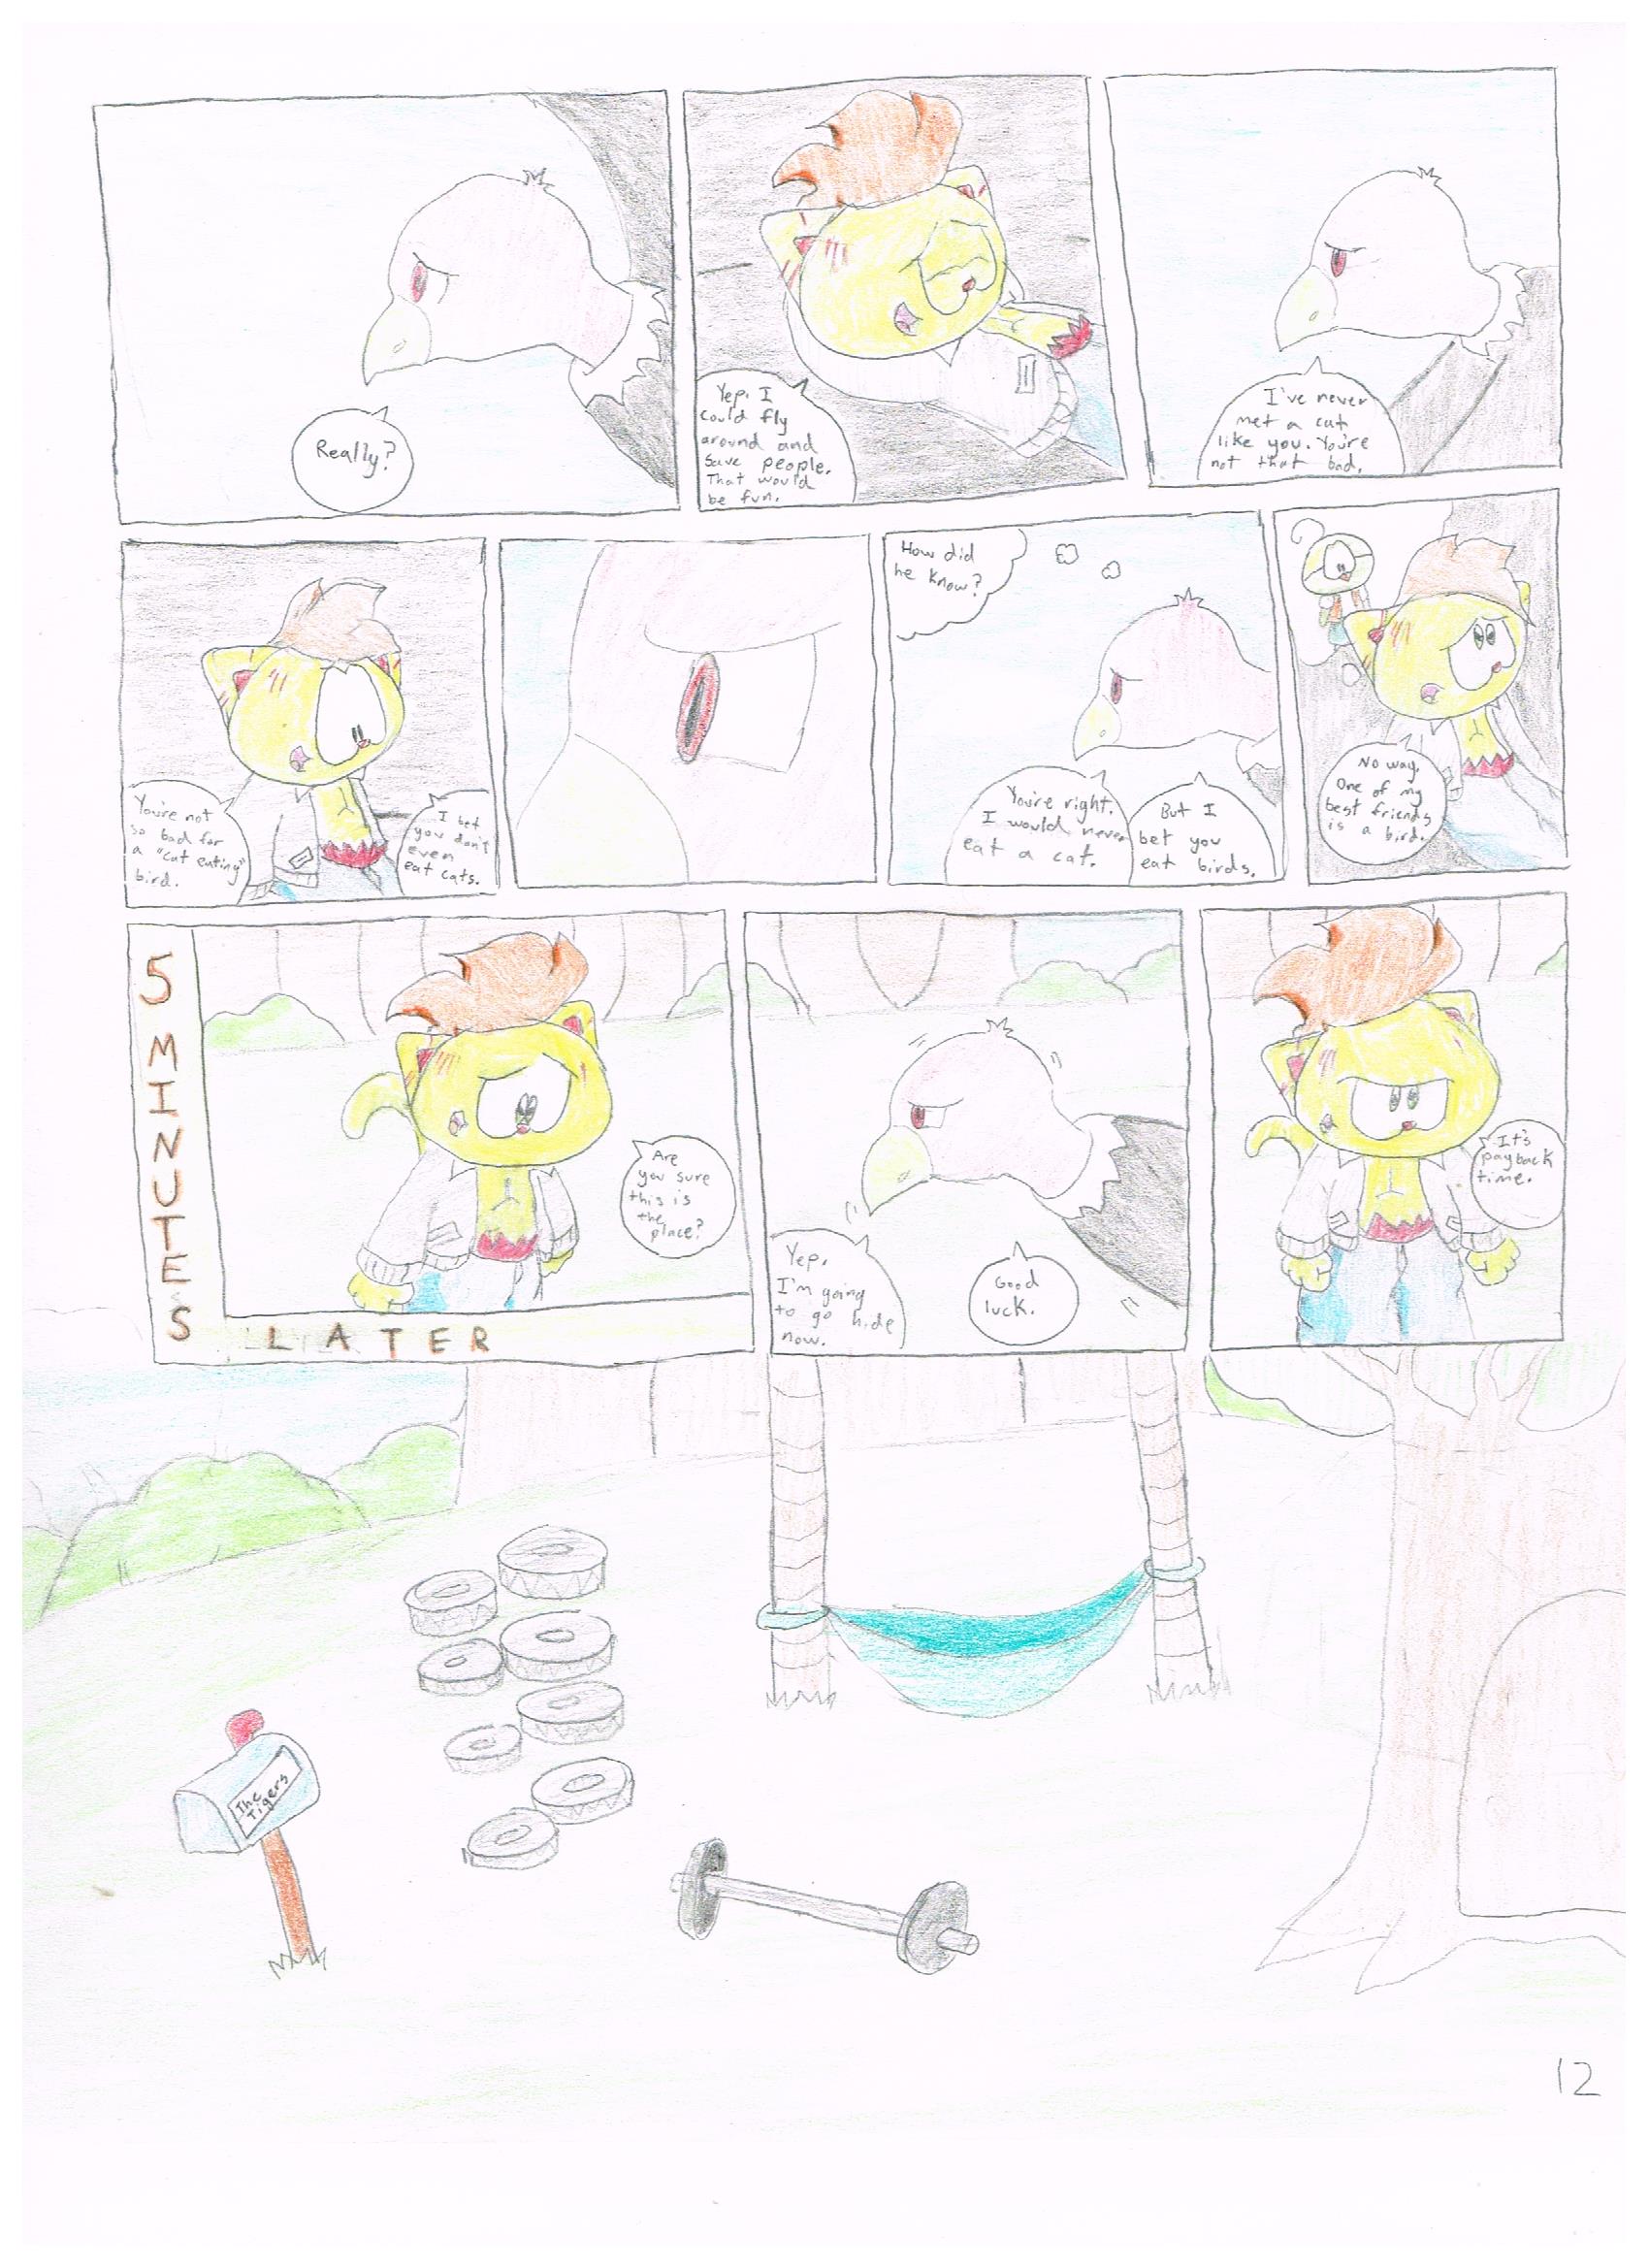 Really?
Yep. I
could fly
around and
save people.
That would
be fun.
I've never
met a cat
like you. You're
not that bad.
You're not
so bad for
a "cat eating"
bird.
I bet
you don't
even
eat cats.
How did
he know?
You're right.
I would never
eat a cat.
But I
bet you
eat birds.
No way.
One of my
best friends
is a bird.
5 MINUTES
LATER
Are
you sure
this is
the
place?
Yep.
I'm going
to go hide
now.
Good
luck.
It's
payback
time.
The
Tigers
12